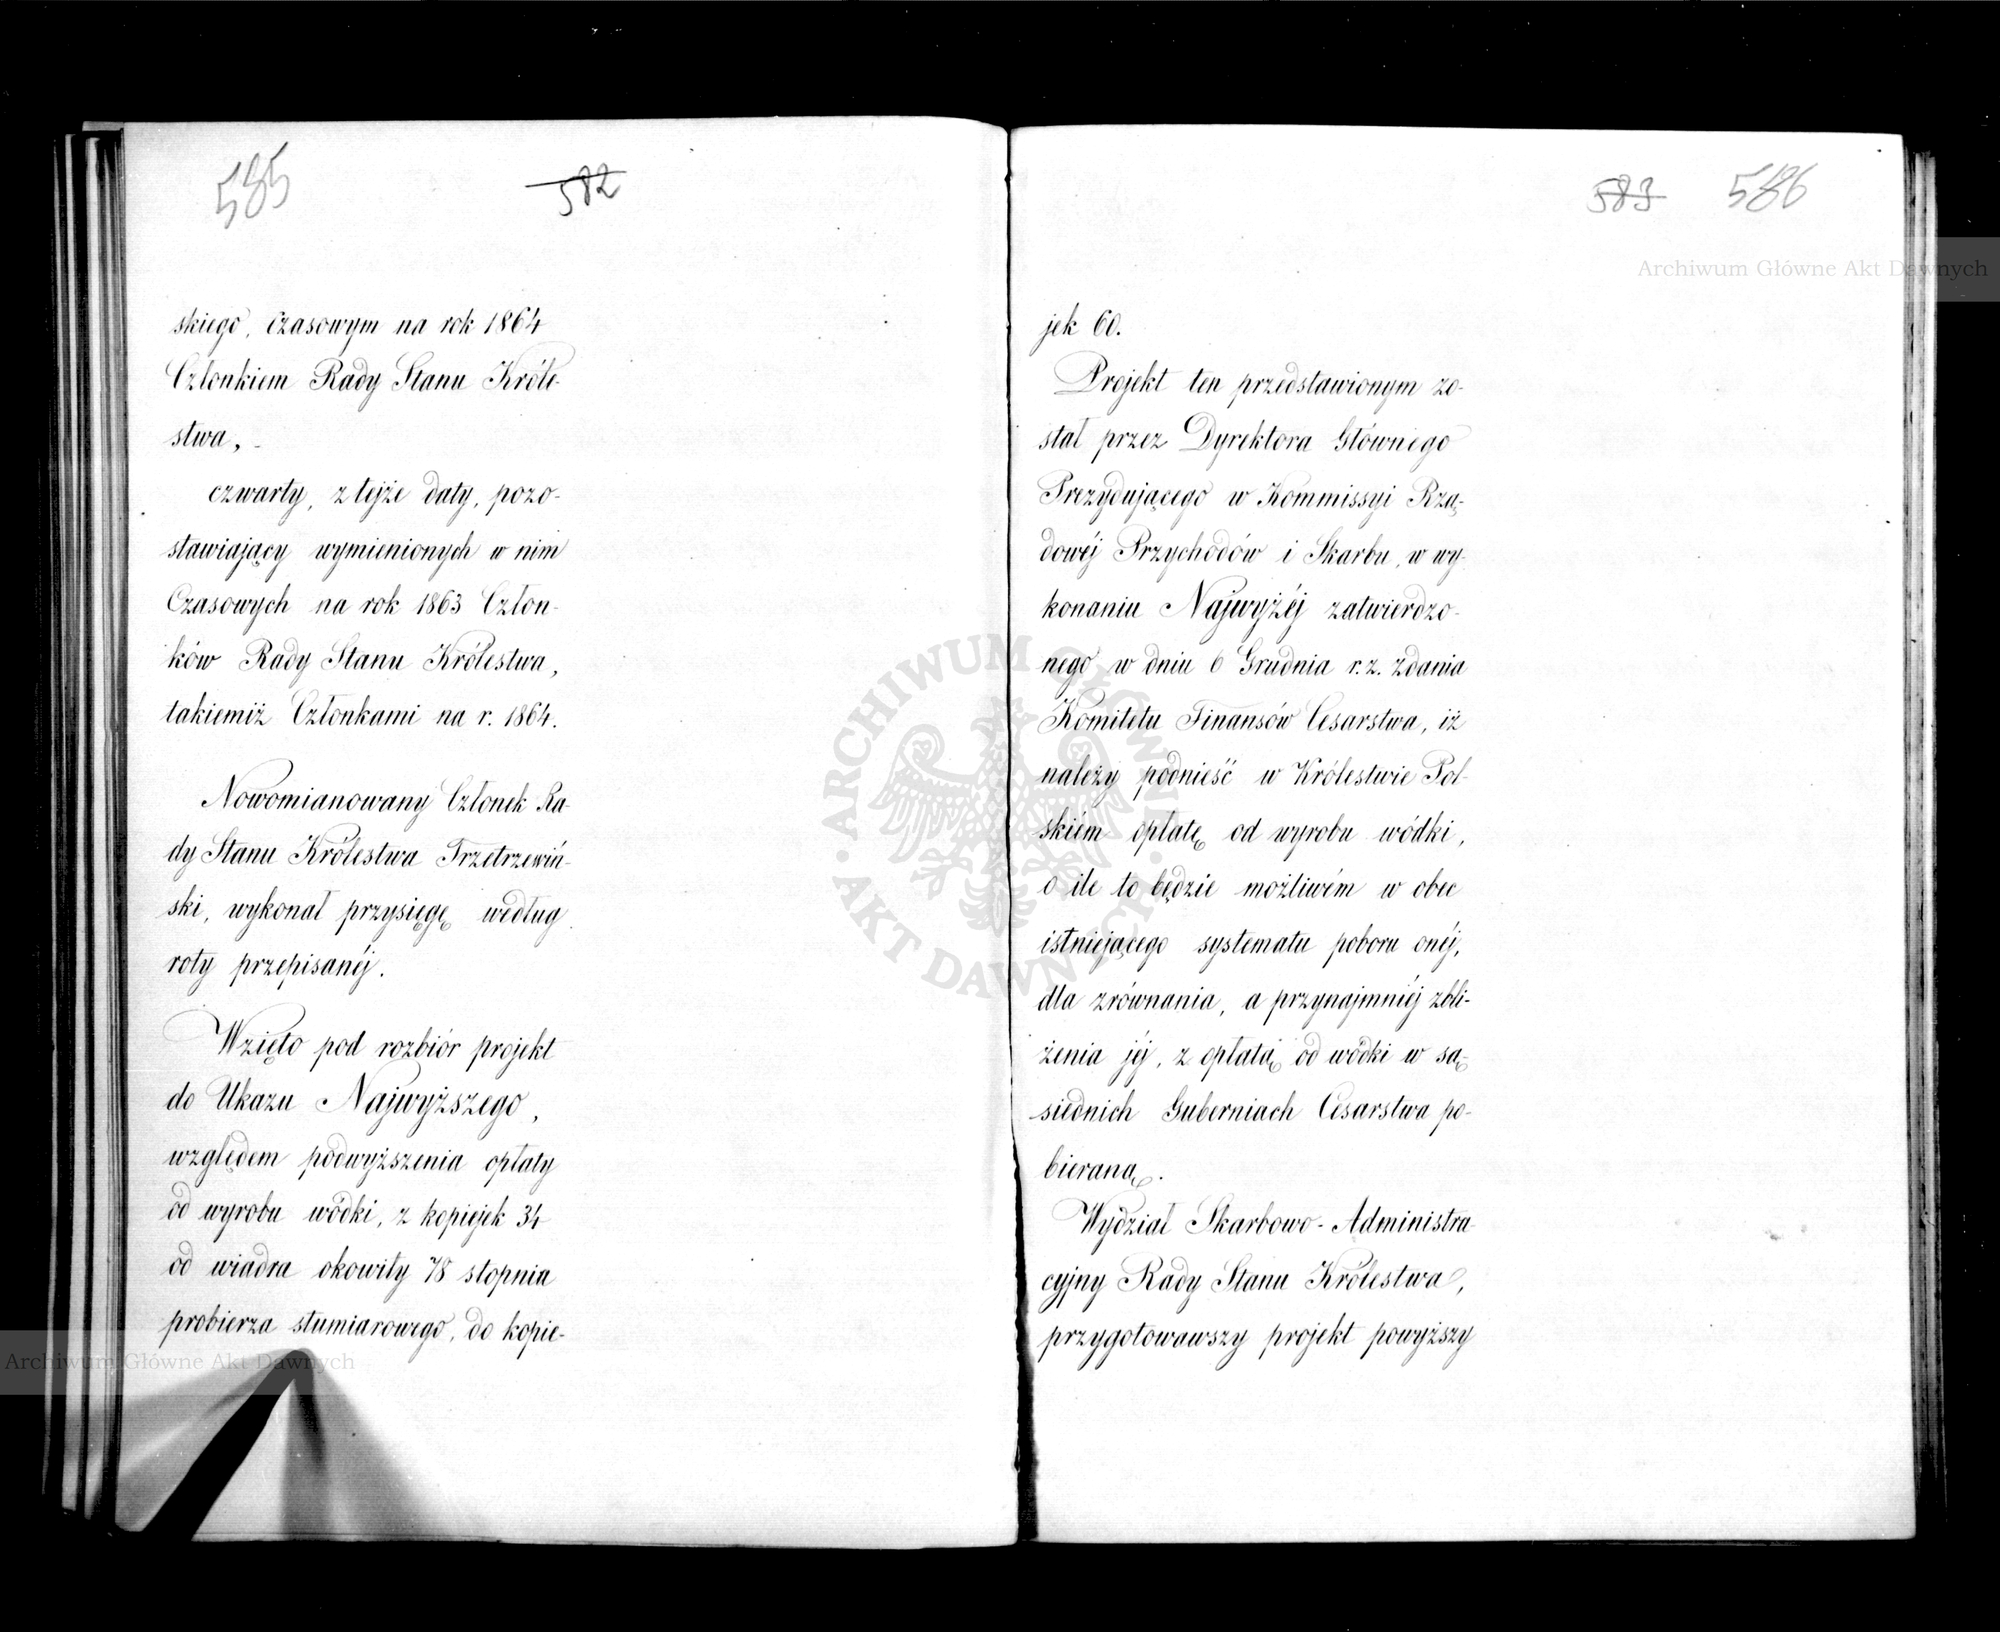 585
582
skiego, czasowym na rok 1864
Członkiem Rady Stanu Króle-
stwa, -
czwarty, z tejże daty, pozo-
stawiający wymienionych w nim
Czasowych na rok 1863 Człon-
ków Rady Stanu Królestwa,
takiemiż Członkami na r. 1864.
Nowomianowany Członek Ra-
dy Stanu Królestwa Trzetrzewiń-
ski, wykonał przysięgę według
roty przepisanéj.
Wzięto pod rozbiór projekt
do Ukazu Najwyższego,
względem podwyższenia opłaty
od wyrobu wódki, z kopiejek 34
od wiadra okowity 78 stopnia
probierza stumiarowego, do kopie-
583 586
jek 60.
Projekt ten przedstawionym zo-
stał przez Dyrektora Głównego
Prezydującego w Kommissyi Rzą-
dowéj Przychodów i Skarbu, w wy-
konaniu Najwyżéj zatwierdzo-
nego w dniu 6 Grudnia r. z. zdania
Komitetu Finansów Cesarstwa, iż
należy podnieść w Królestwie Pol-
skiém opłatę od wyrobu wódki,
o ile to będzie możliwém w obec
istniejącego systematu poboru onéj,
dla zrównania, a przynajmniéj zbli-
żenia jéj, z opłatą od wódki w są-
siednich Guberniach Cesarstwa po-
bieraną.
Wydział Skarbowo-Administra-
cyjny Rady Stanu Królestwa,
przygotowawszy projekt powyższy
Archiwum Główne Akt Dawnych
ARCHIWUM GŁÓWNE AKT DAWNYCH
Archiwum Główne Akt Dawnych